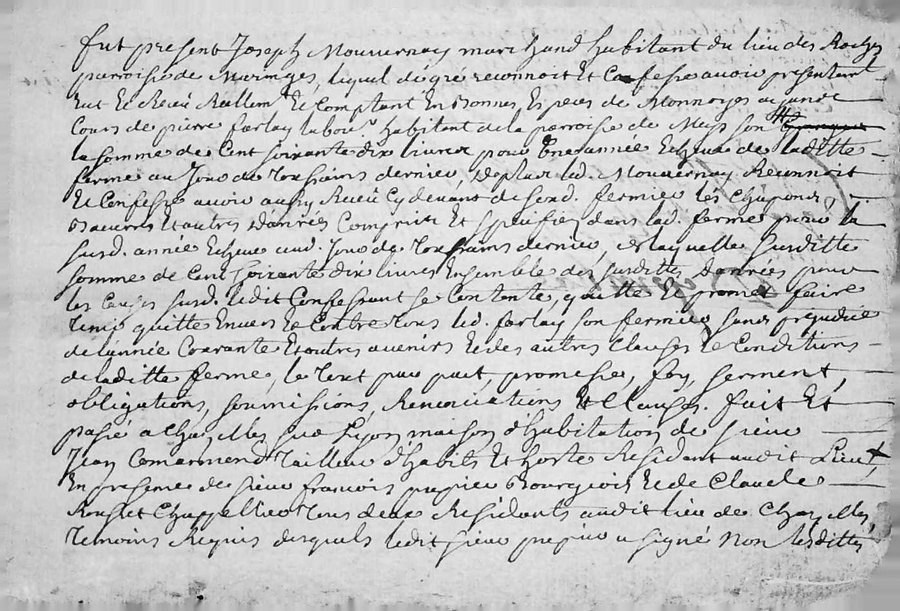 fut present Joseph Mouvernay marchand habitant du lieu des Roches
parroisse de Maringes, lequel de gré reconnoit Et Confesse avoir presentemt
Eut Et Receu Reallemt Et Comptant En bonnes Especes de Monnoyes ayant
Cours de pierre farlay labour. habitant de la parroisse de Meys son
la somme de Cent soixante dix livres pour Une année Echeue de laditte
ferme au Jour de Toussaints dernier, de plus led. Mouvernay Reconnoit
Et Confesse avoir aussy Receu Cy devant desd. fermier les Chapons,
Baeurres Et autres danrées Compris Et Speciffiés dans lad. ferme pour la
susd. année Echeue aud. Jour de Toussaints dernier, de laquelle susditte
somme de Cent soixante dix livres Ensemble des susdittes danrées pour
les Causes susd. ledit Confessant se Contente, quitte Et promet faire
Tenir quitte Envers Et Contre Tous led. farlay son fermier sans prejudice
de l'année Courante Et autres avenirs Et des autres Clauses Et Conditions
de laditte ferme, le Tout par pait, promesse, foy, serment,
obligations, soumissions, Renonciations Et Clauses. fait Et
passé a Chazelles sur Lyon maison d'habitation de sieur
Jean Comarmend Tailleur d'habits Et hoste Résidant audit Lieu,
En presence de sieur francois prepier Bourgeois Et de Claude
Chappellier Tous deux Résidants audit lieu de Chazelles,
Temoins Requis desquels ledit sieur prepier a signé Non lesdittes